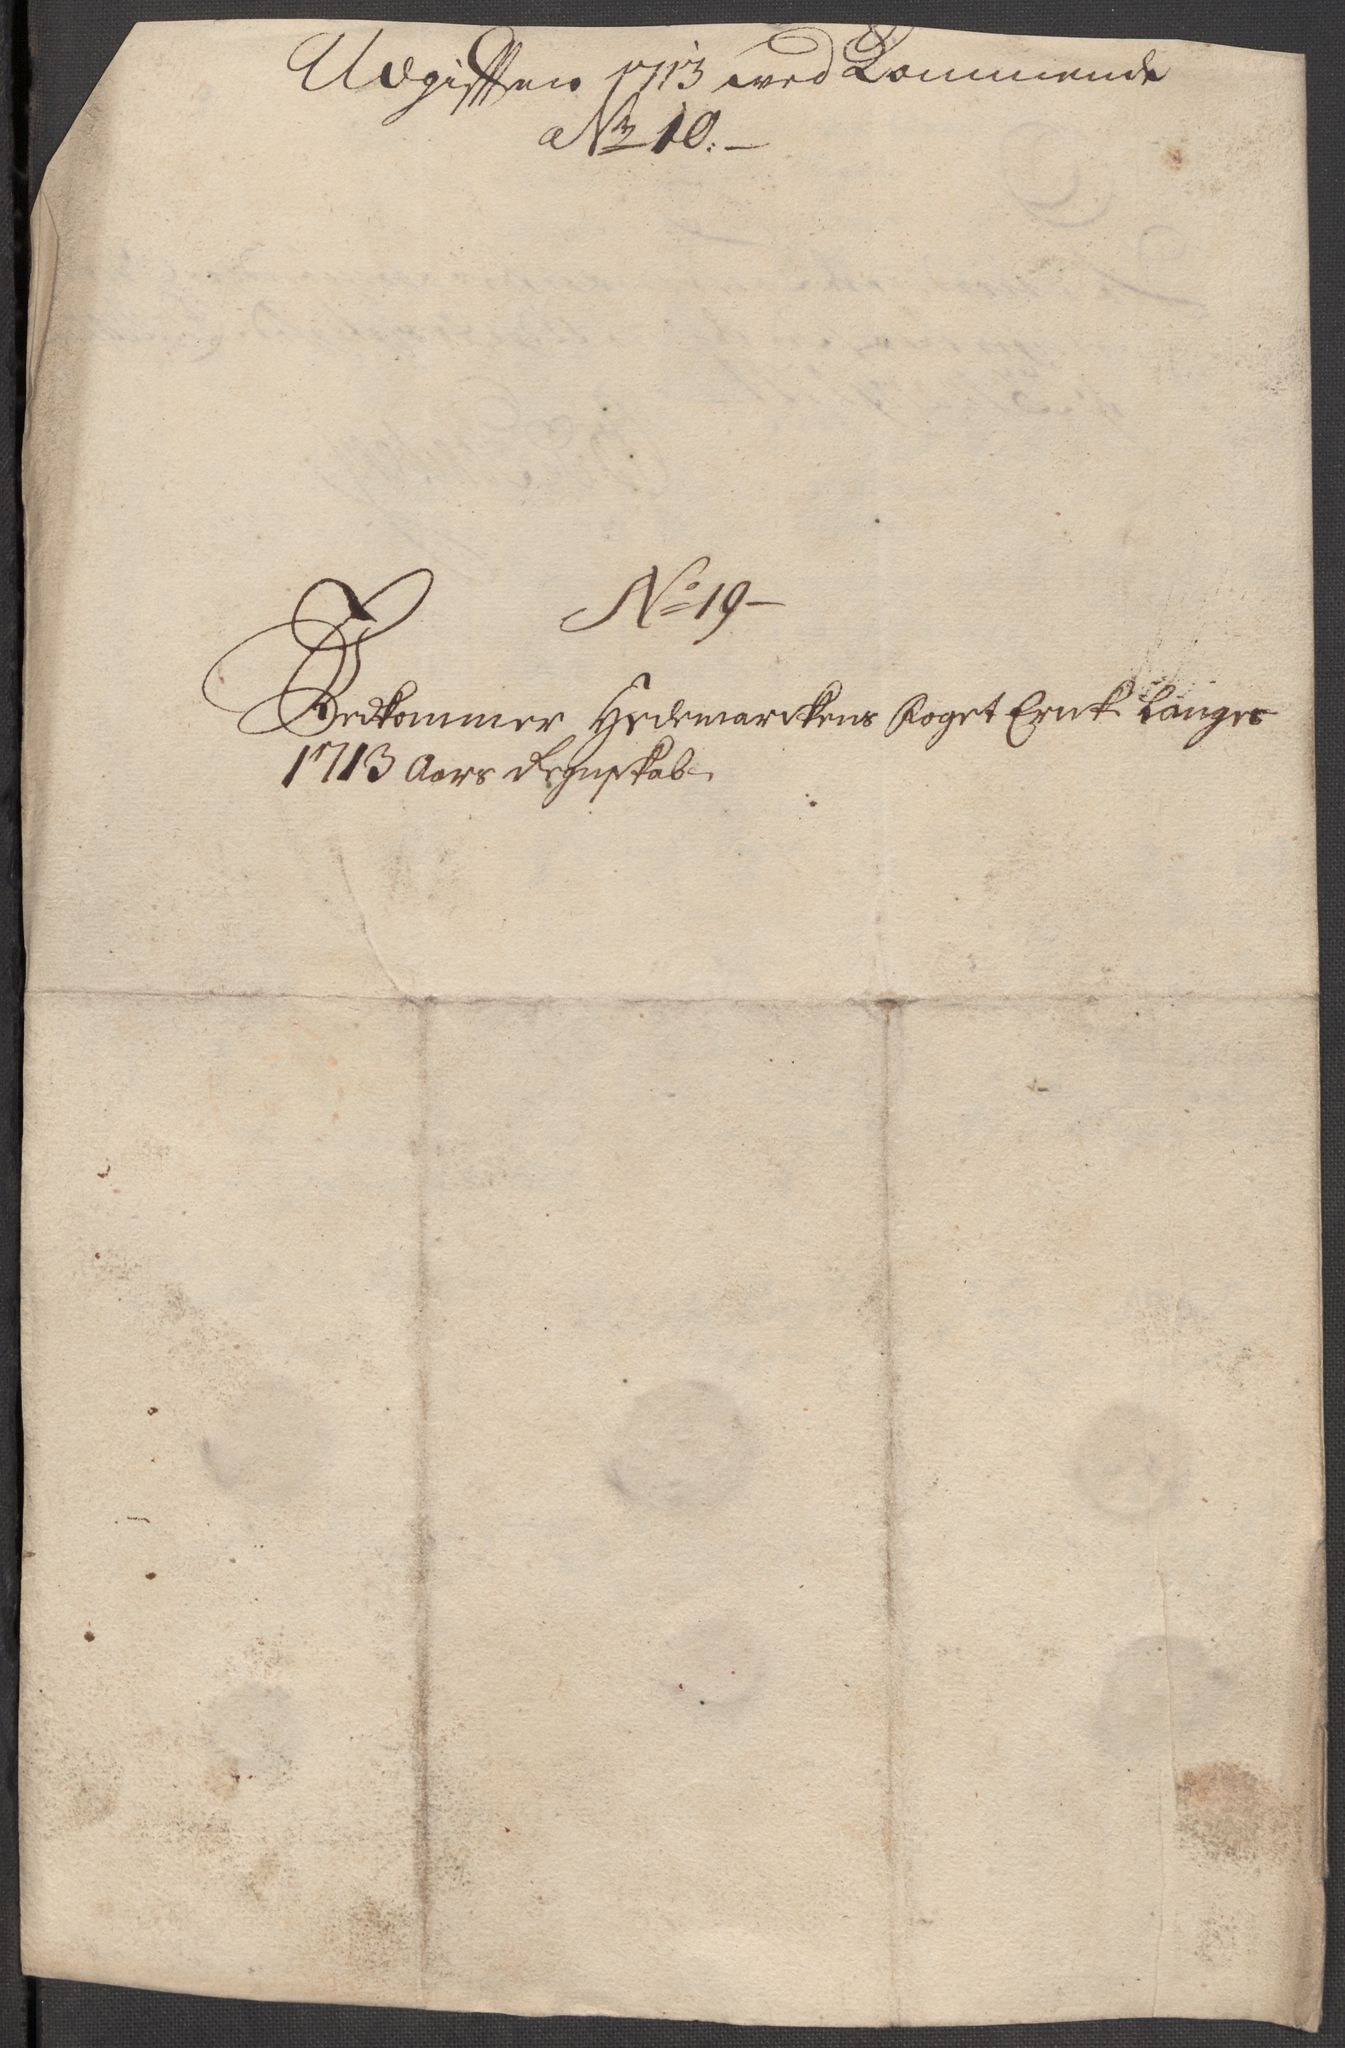 Udgifften 1713 wed Kommende
No 10.
No 19
Vedkommer Hedemarckens Foget Erick Langes
1713 Aars Regnskab